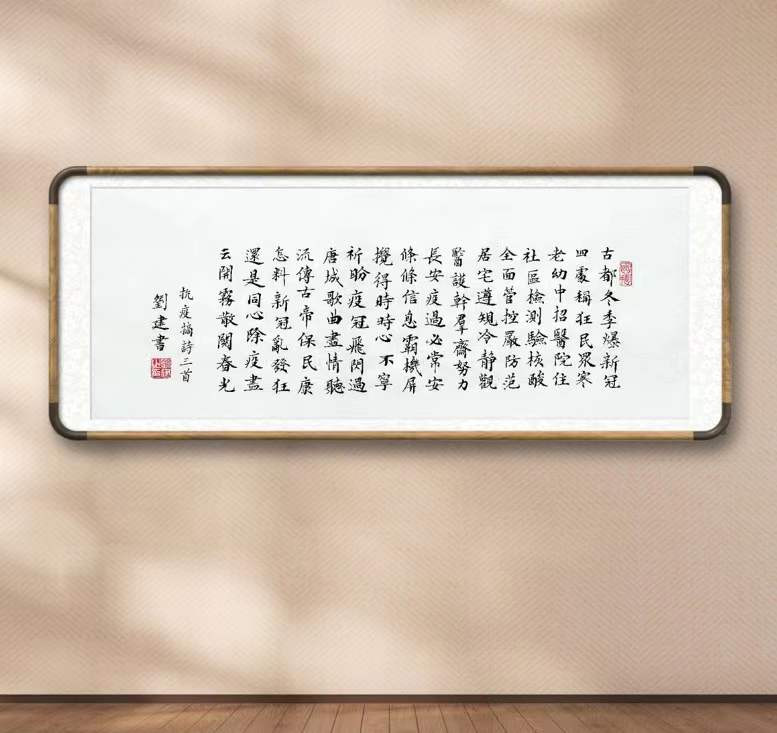 古都冬季爆新冠
四處稱狂民眾寒
老幼中招醫院住
社區檢測驗核酸
全面管控嚴防范
居宅遵規冷靜觀
醫護幹羣齋努力
長安疫過必常安
條條信息霸機屏
攪得時時心不寧
祈盼疫冠飛閃過
唐城歌曲盡情聽
流傳古帝保民康
怎料新冠亂發狂
還是同心除疫盡
云開霧散春光
抗疫詩三首
劉建書